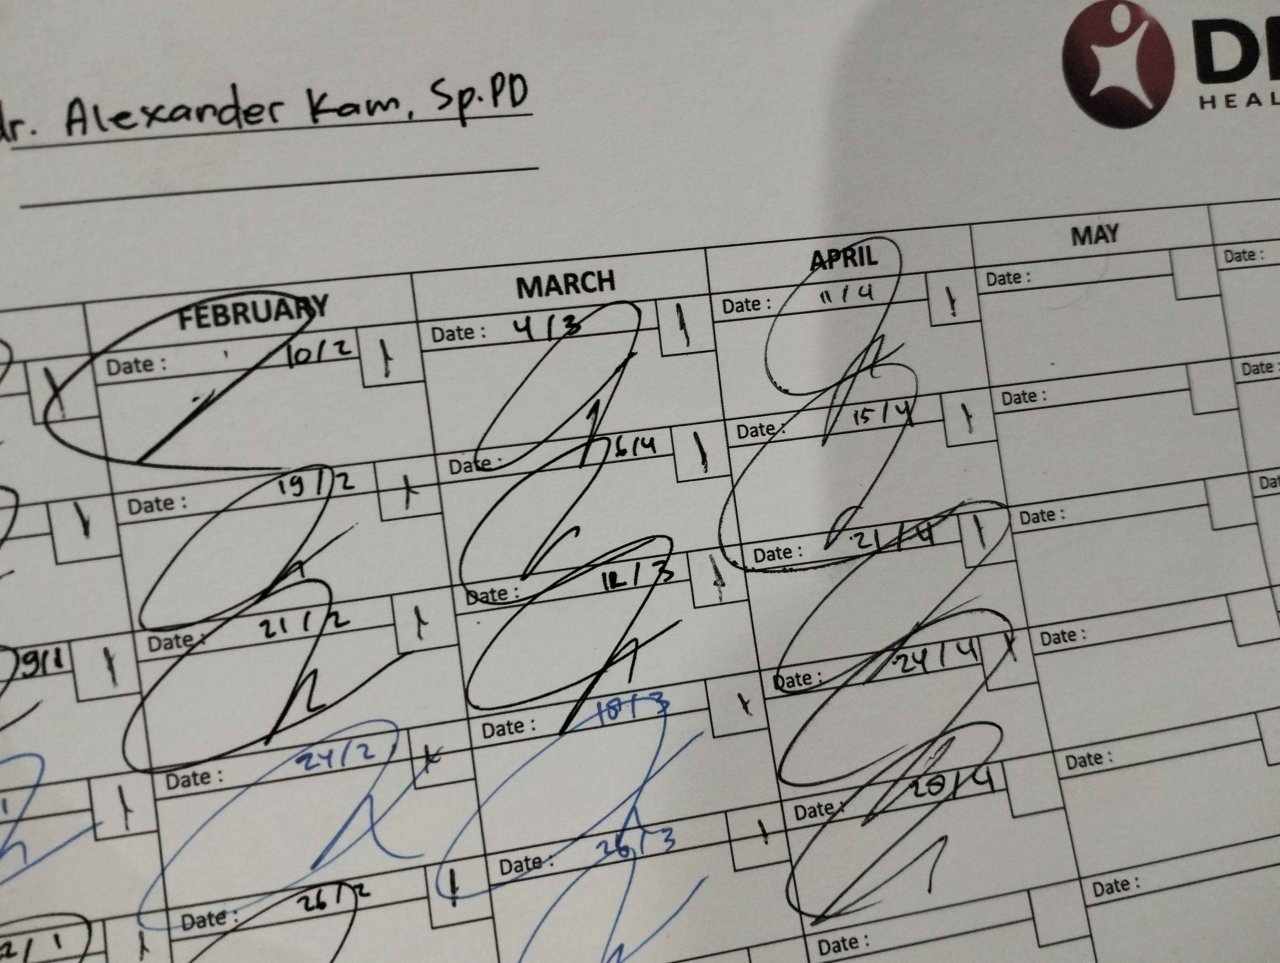 dr. Alexander Kam, Sp.PD
FEBRUARY MARCH APRIL MAY
Date : 10/2 Date : 4/3 Date : 11/4 Date : Date :
Date : 19/2 Date : 6/4 Date : 15/4 Date : Date :
9/1 Date : 21/2 Date : 12/3 Date : 21/4 Date :
Date : 24/2 Date : 18/3 Date : 24/4 Date :
Date : 26/2 Date : 26/3 Date : 28/4 Date :
Date : Date :